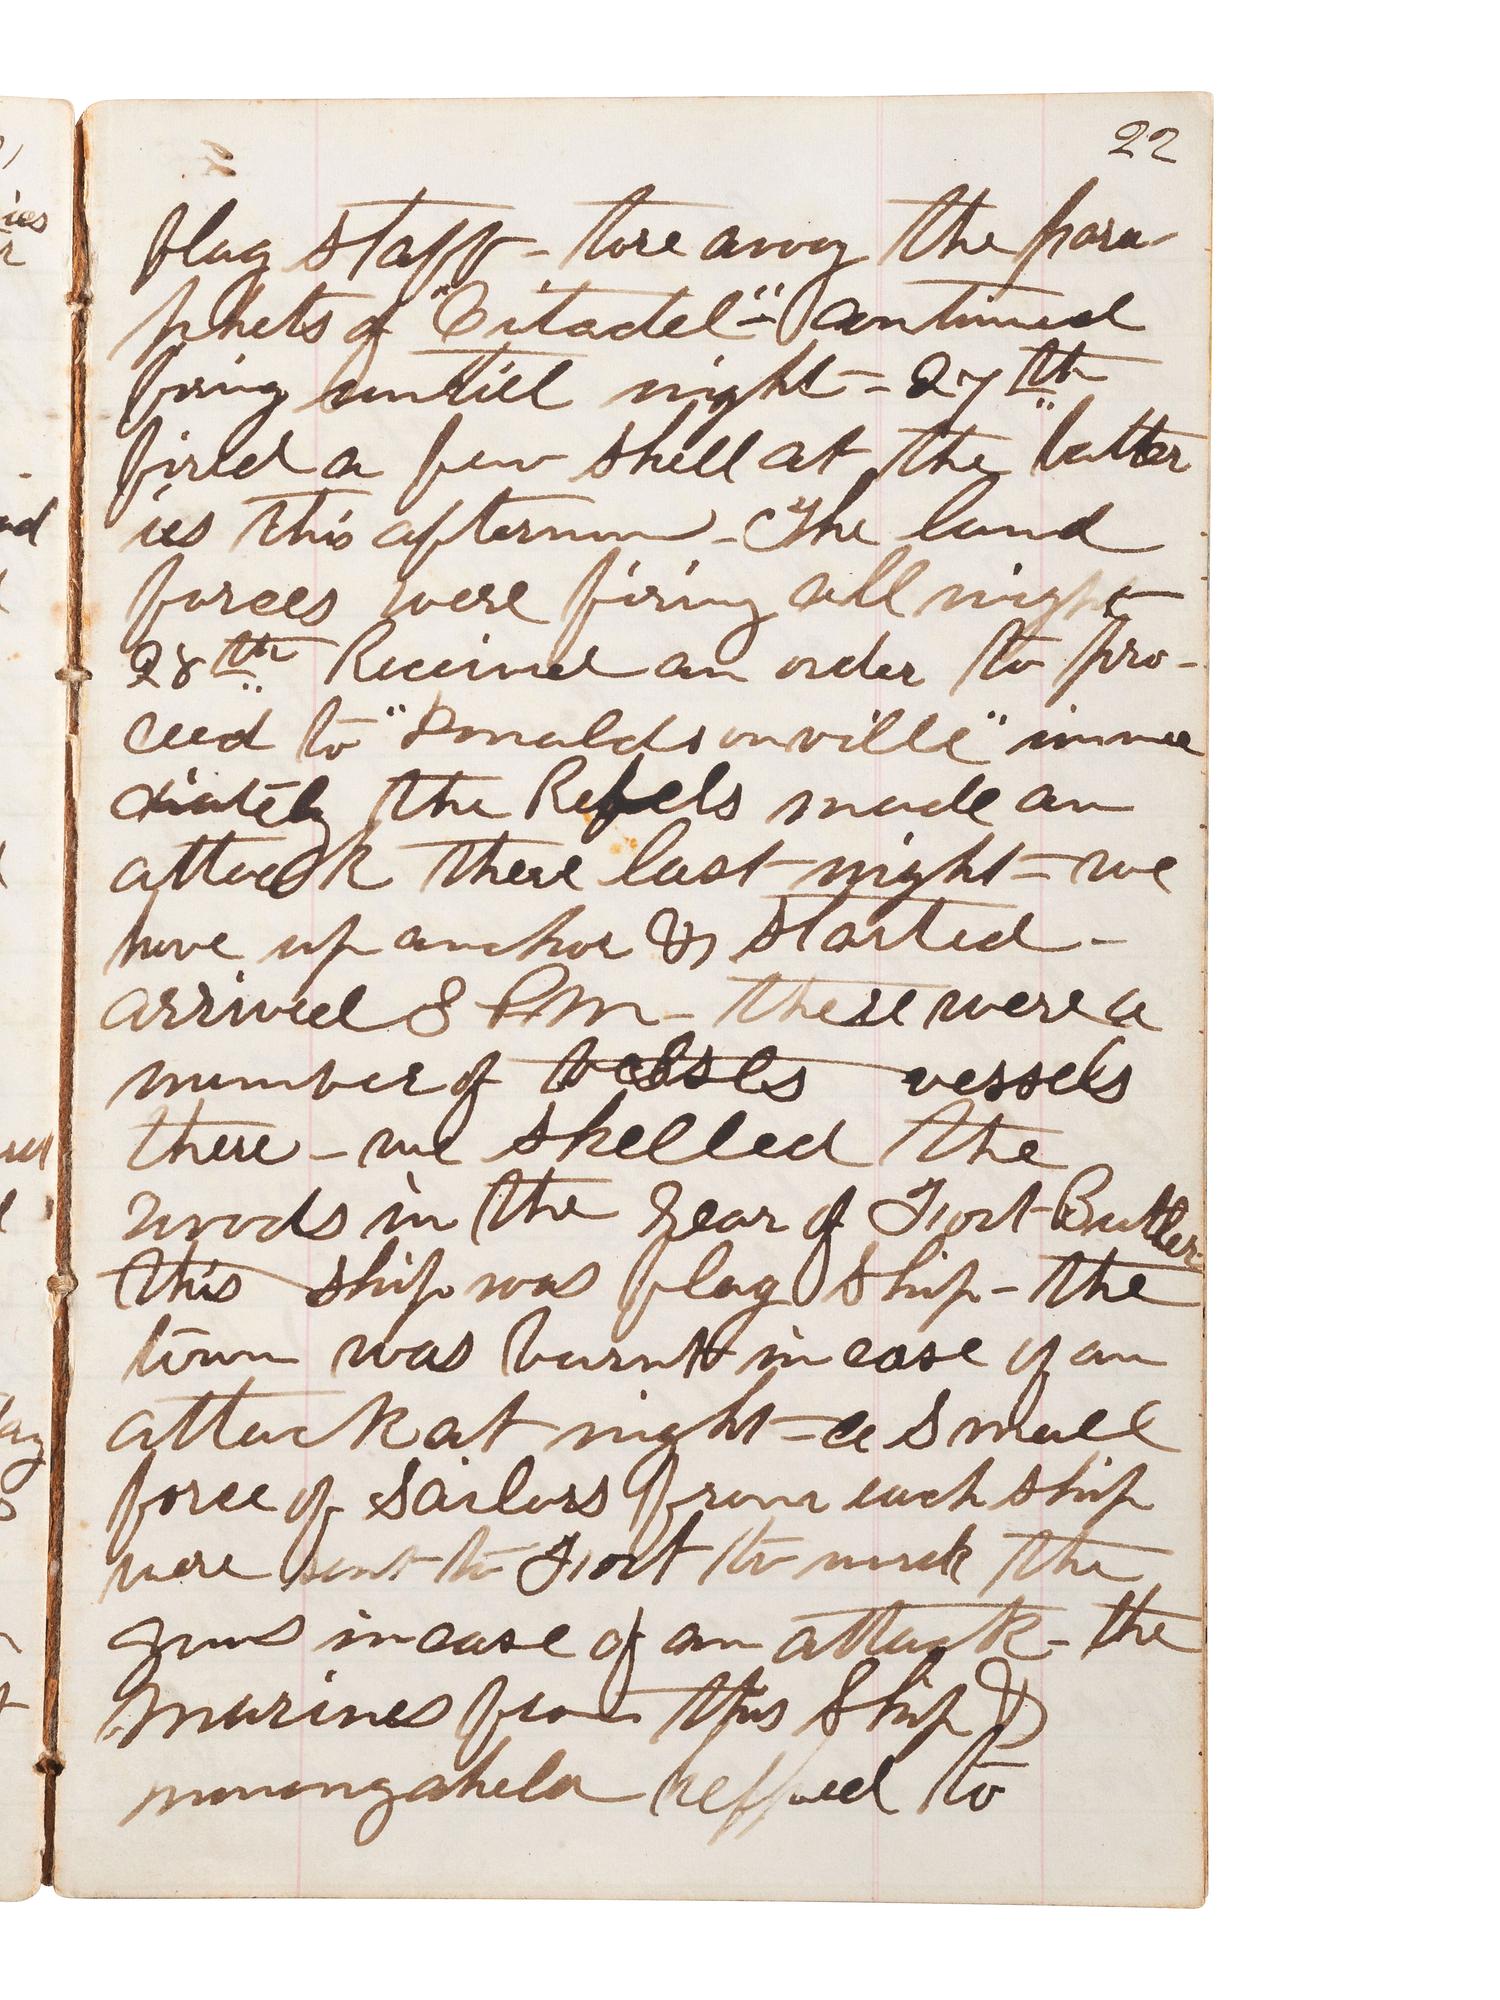 22
flag staff - tore away the para-
phets of "Citadel" - continued
firing untill night = 27th
fired a few shell at the batter
ies this afternoon - The land
forces were firing all night
28th Received an order to pro-
ceed to "Donaldsonville" imme
diately the Rebels made an
attack there last night = we
hove up anchor & started -
arrived 8 P.M - there were a
number of vessels
there - we shelled the
woods in the Rear of Fort Butler-
this ship was flag ship - the
town was burnt in case of an
attack at night = a small
force of sailors from each ship
were sent to Fort to work the
guns in case of an attack - the
marines from this ship &
monongahela helped to